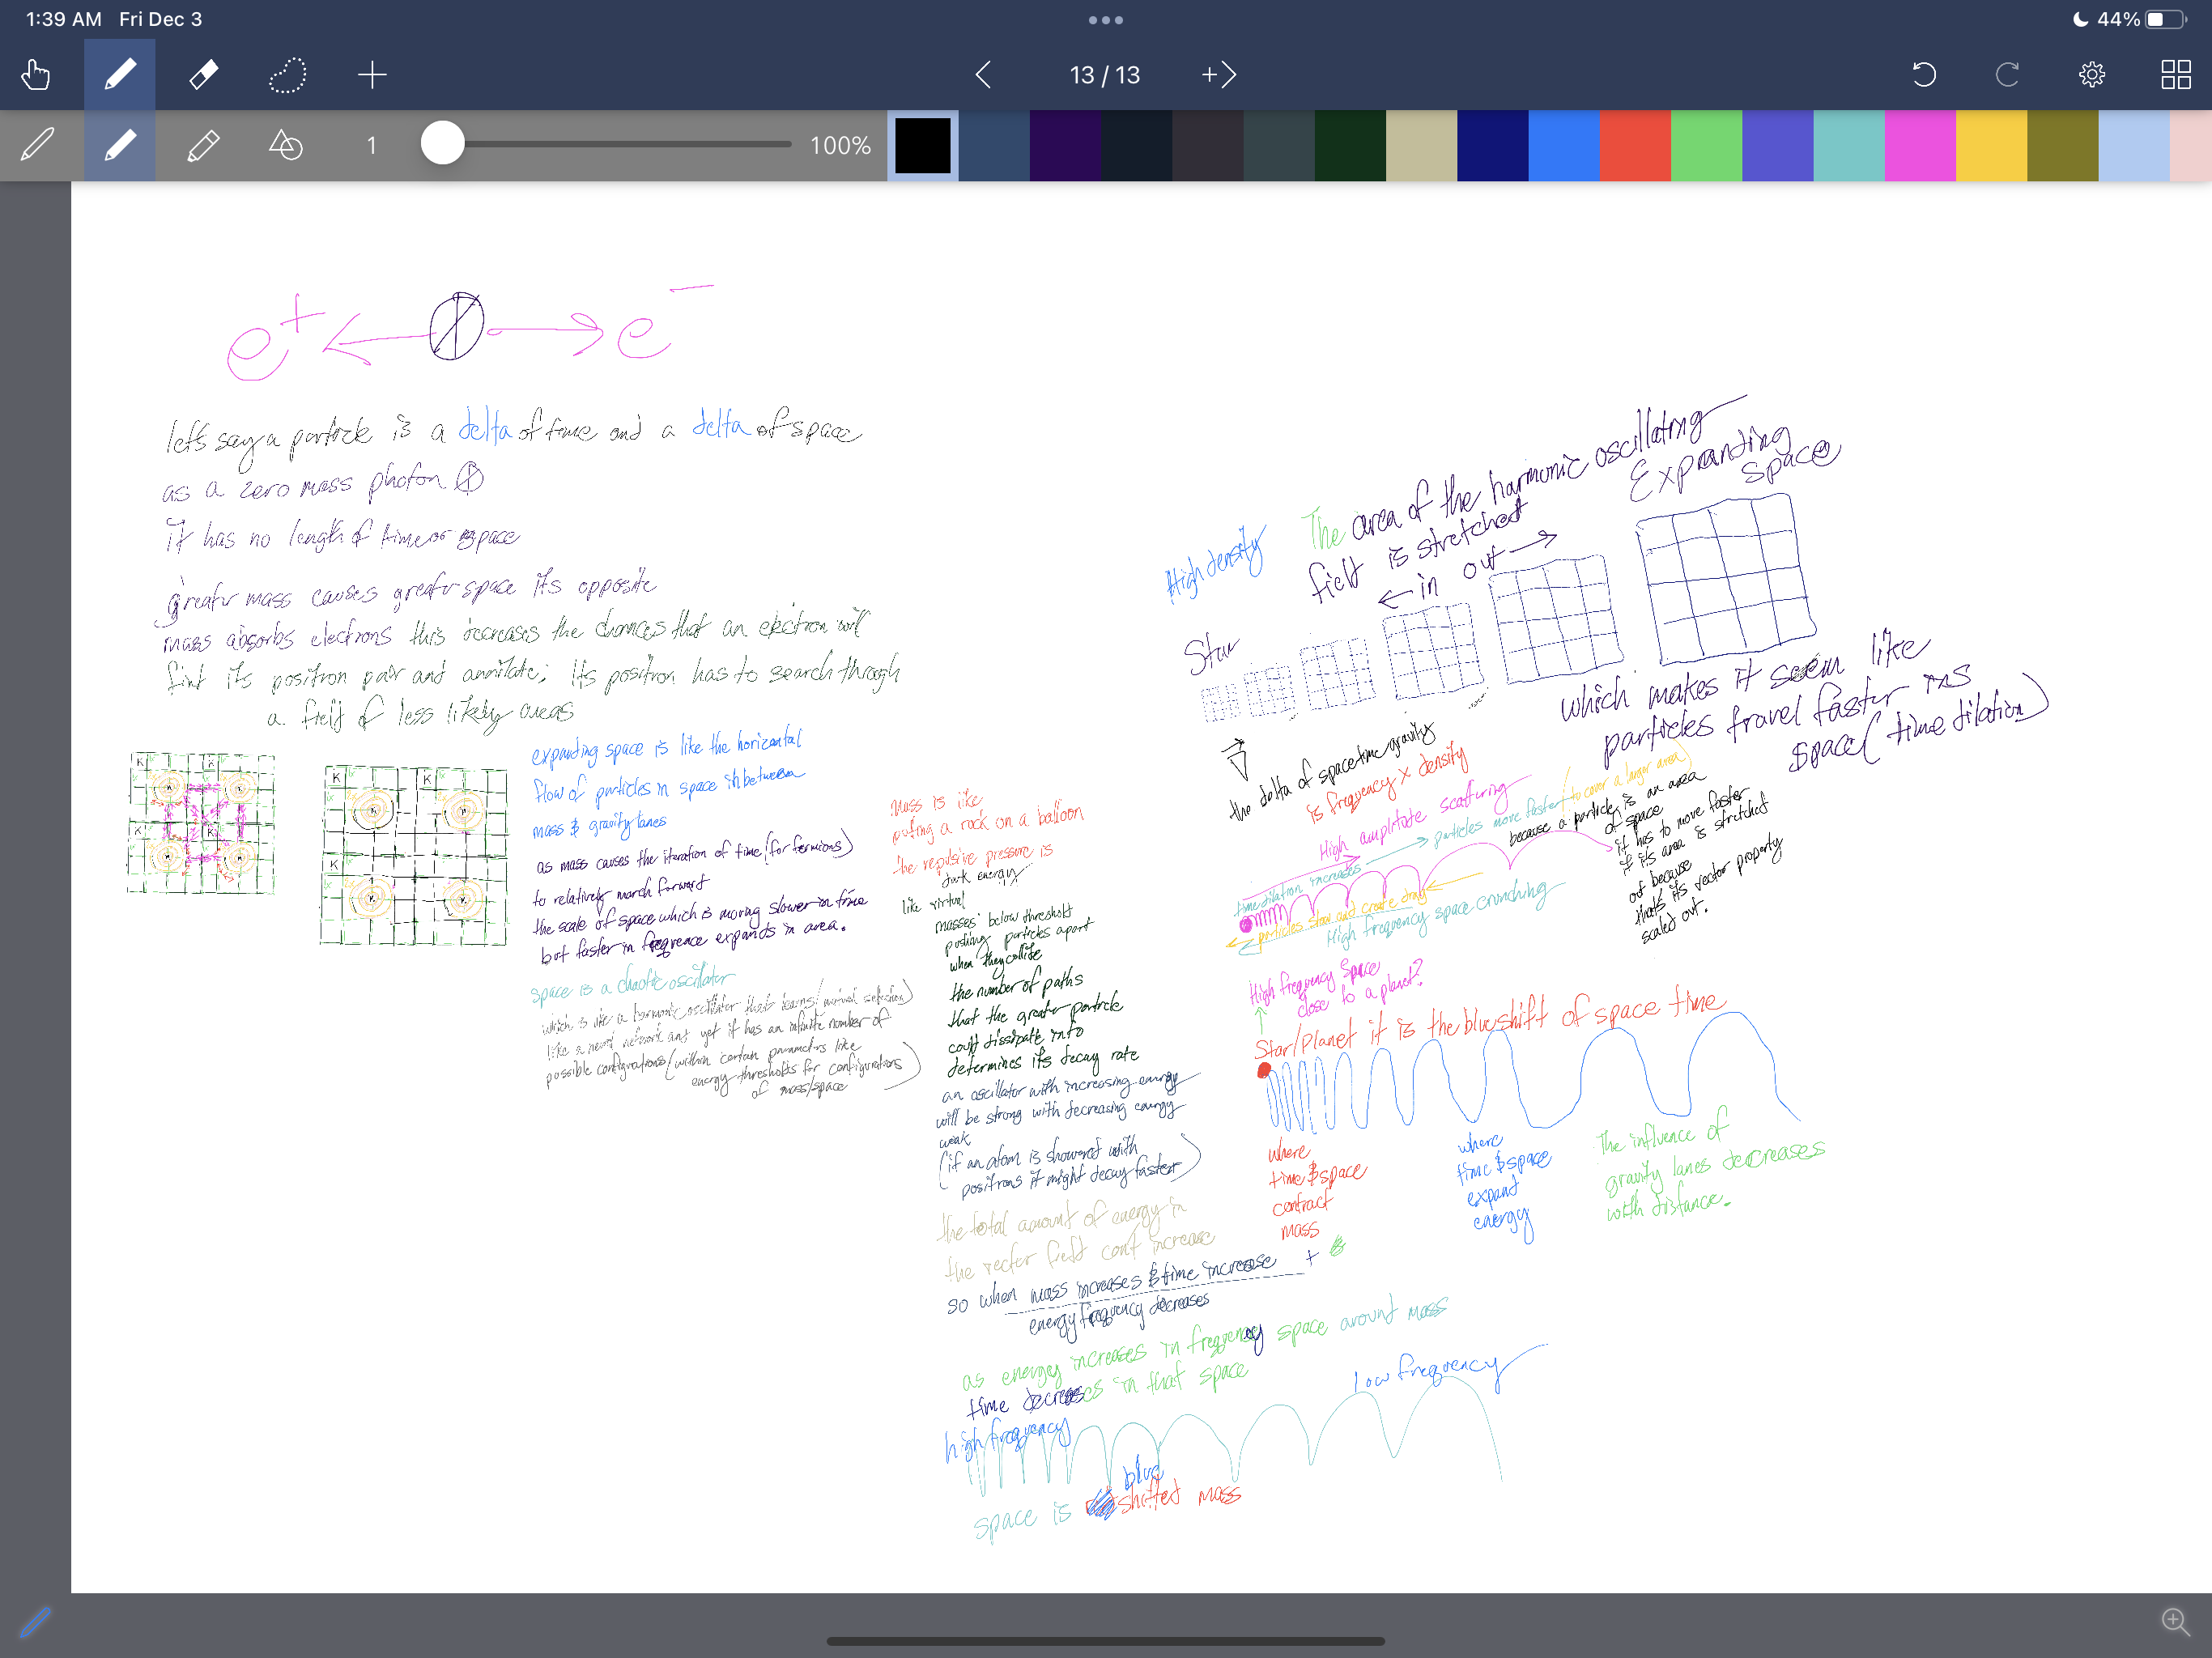 1:39 AM Fri Dec 3
44%
13 / 13
1
100%
e+ e-
let's say a particle is a delta of time and a delta of space
as a zero mass photon
it has no length of time or space
greater mass causes greater space its opposite
mass absorbs electrons this decreases the chances that an electron will
find its positron pair and annilate; its positron has to search through
a field of less likely areas
K K
K K
K K
K
expanding space is like the horizontal
flow of particles in space in between
mass & gravity lanes
as mass causes the iteration of time (for fermions)
to relatively march forward
the scale of space which is moving slower in time
but faster in freqrence expands in area.
space is a chaotic oscillator
which is like a harmonic oscillator that learns/
like a neural network and yet it has an infinite number of
possible configurations (within certain parameters like
energy thresholds for configurations
of mass/space
Mass is like
puting a rock on a balloon
the repulsive pressure is
dark energy
like virtual
masses below threshold
pushing particles apart
when they collide
the number of paths
that the greater particle
could dissipate into
determines its decay rate
an oscillator with increasing energy
will be strong with decreasing energy
weak
(if an atom is showered with
positrons it might decay faster)
the total amount of energy in
the vector field cant increase
so when mass increases & time increase +
energy frequency decreases
as energy increases in frequency space around mass
time decreases in that space
high frequency
low frequency
blue
space is shifted mass
High density
The area of the harmonic oscillating
field is stretched
← in out →
Expanding
space
Star
which makes it seem like
particles travel faster in
space (time dilation)
the delta of spacetime gravity
is frequency x density
High amplitude scattering
→ particles move faster (to cover a larger area)
because a particle is an area
of space
it has to move faster
if its area is stretched
out because
that's its vector property
scaled out.
time dilation increases
particles slow and create drag
High frequency space crunching
High frequency space
close to a planet?
Star/Planet it is the blueshift of space time
where
time & space
contract
mass
where
time & space
expand
energy
The influence of
gravity lanes decreases
with distance.